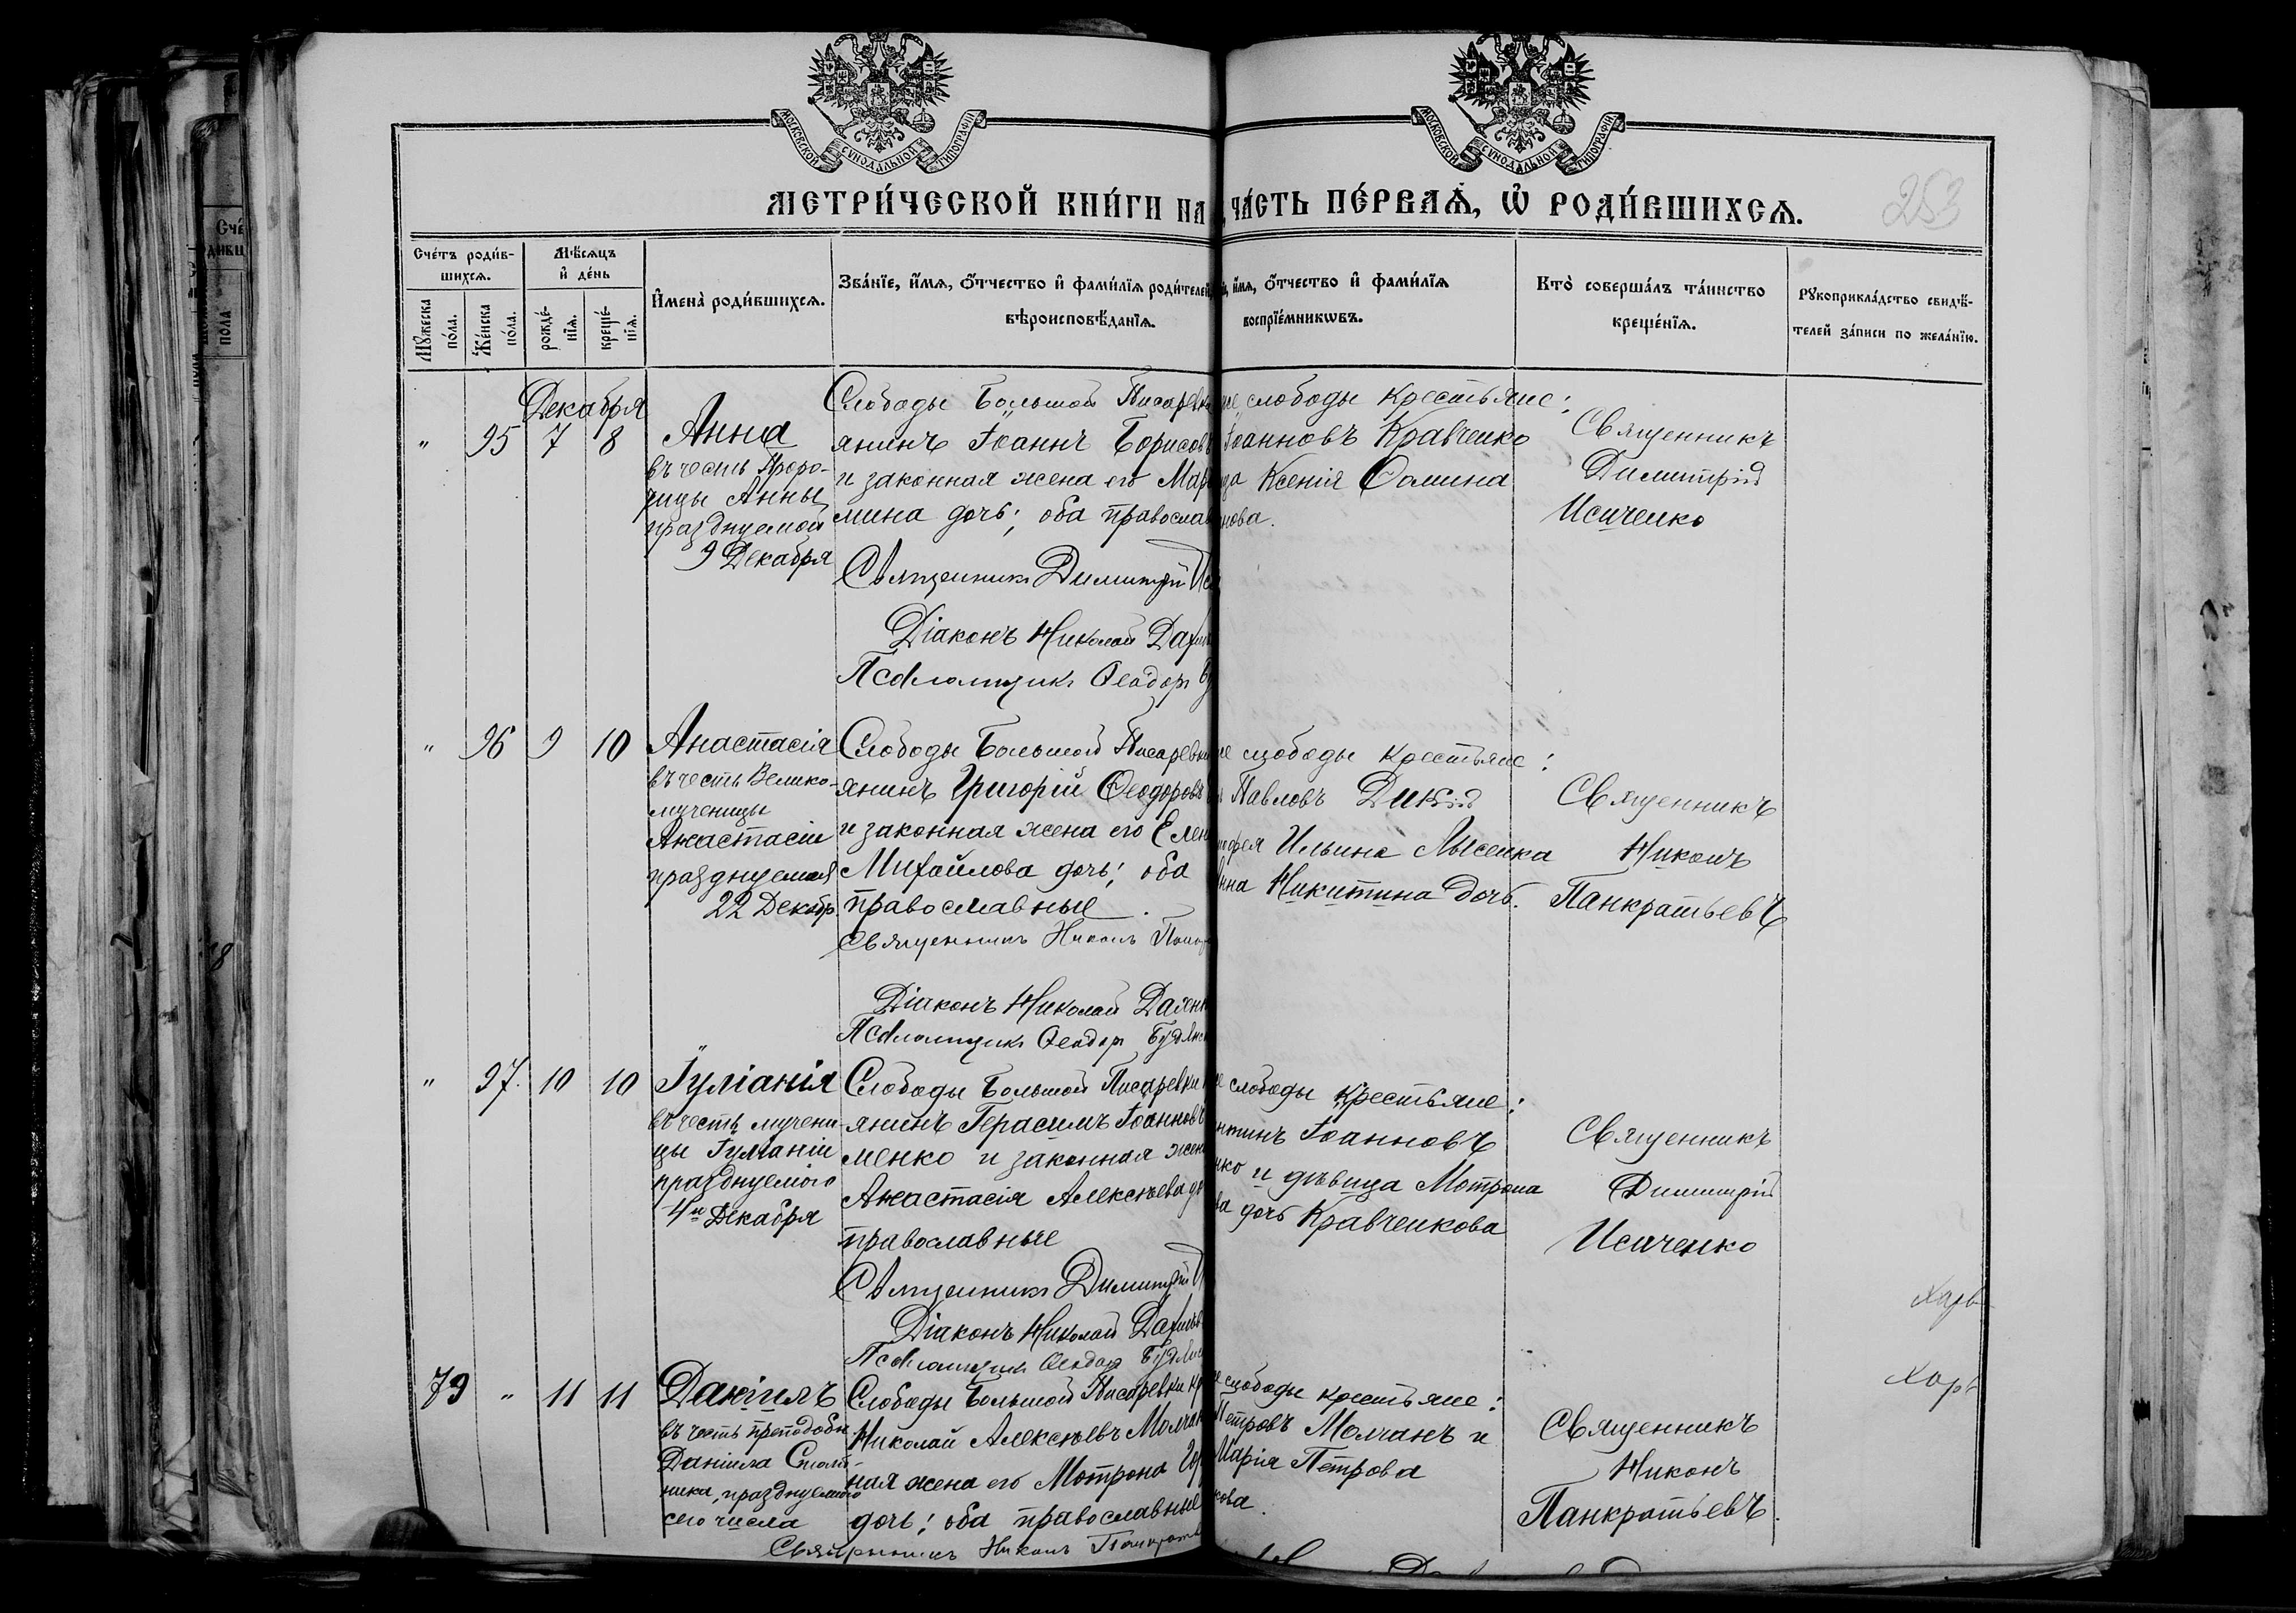 МОСКОВСКОЙ СѴНОДАЛЬНОЙ ТИПОГРАФІИ
МОСКОВСКОЙ СѴНОДАЛЬНОЙ ТИПОГРАФІИ
МЕТРИ́ЧЕСКОЙ КНИ́ГИ НА ЧА́СТЬ ПЕ́РВАѦ, Ѡ҆ РОДИ́ВШИХСѦ.
253
Сче́тъ роди́в-
шихсѧ.
Мꙋ́жеска
по́ла.
Же́нска
по́ла.
Мѣ́сѧцъ
и҆ де́нь
рожде́-
нїѧ.
креще́-
нїѧ.
И҆мена̀ роди́вшихсѧ.
Зва́нїе, и҆́мѧ, ѻ҆́тчество и҆ фами́лїѧ роди́телей
вѣроисповѣ́данїѧ.
и҆́мѧ, ѻ҆́тчество и҆ фами́лїѧ
воспрїе́мникѡвъ.
Кто̀ соверша́лъ та́инство
креще́нїѧ.
Рꙋкоприкла́дство свидѣ́-
телей за́писи по жела́нїю.
Декабря
" 95 7 8
Анна
въ честь Проро-
чицы Анны
празднуемой
9 Декабря
Слободы Большой Писаревк
янинъ Іоаннъ Борисовъ
и законная жена его Мар
мина дочь; оба православ
Священникъ Димитрій Ис
Діаконъ Николай
Псаломщикъ Ѳеодоръ
слободы крестьяне:
Іоанновъ Кравченко
Ксенія Ѳомина
нова.
Священникъ
Димитрій
Исиченко
" 96 9 10
Анастасія
въ честь Велико-
мученицы
Анастасіи
празднуемая
22 Декабр
Слободы Большой Писаревки
янинъ Григорій Ѳеодоровъ
и законная жена его Елен
Михайлова дочь; оба
православные.
Священникъ Никонъ Панкр
Діаконъ Николай
Псаломщикъ Ѳеодоръ Будянс
слободы крестьяне:
Павловъ Дикій
Ильина Лысенка
нна Никитина дочь.
Священникъ
Никонъ
Панкратьевъ
" 97. 10 10
Іуліанія
въ честь мучени-
цы Іуліаніи
празднуемого
4го Декабря
Слободы Большой Писаревки
янинъ Герасимъ Іоанновъ
менко и законная жена
Анастасія Алексѣева до
православные
Священникъ Димитрій
Діаконъ Николай
Псаломщикъ Ѳеодоръ Будянс
слободы крестьяне:
нтинъ Іоанновъ
нко и дѣвица Мотрона
ва дочь Кравченкова
Священникъ
Димитрій
Исиченко
Харь
79 " 11 11
Даніилъ
въ честь преподобн.
Даніила Столп-
ника, празднуемаго
сего числа
Слободы Большой Писаревки кр
Николай Алексѣевъ Молчан
ная жена его Мотрона
дочь; оба православные
Священникъ Никонъ Панкрать
слободы крестьяне:
Петровъ Молчанъ и
Марія Петрова
кова.
Священникъ
Никонъ
Панкратьевъ.
Харь